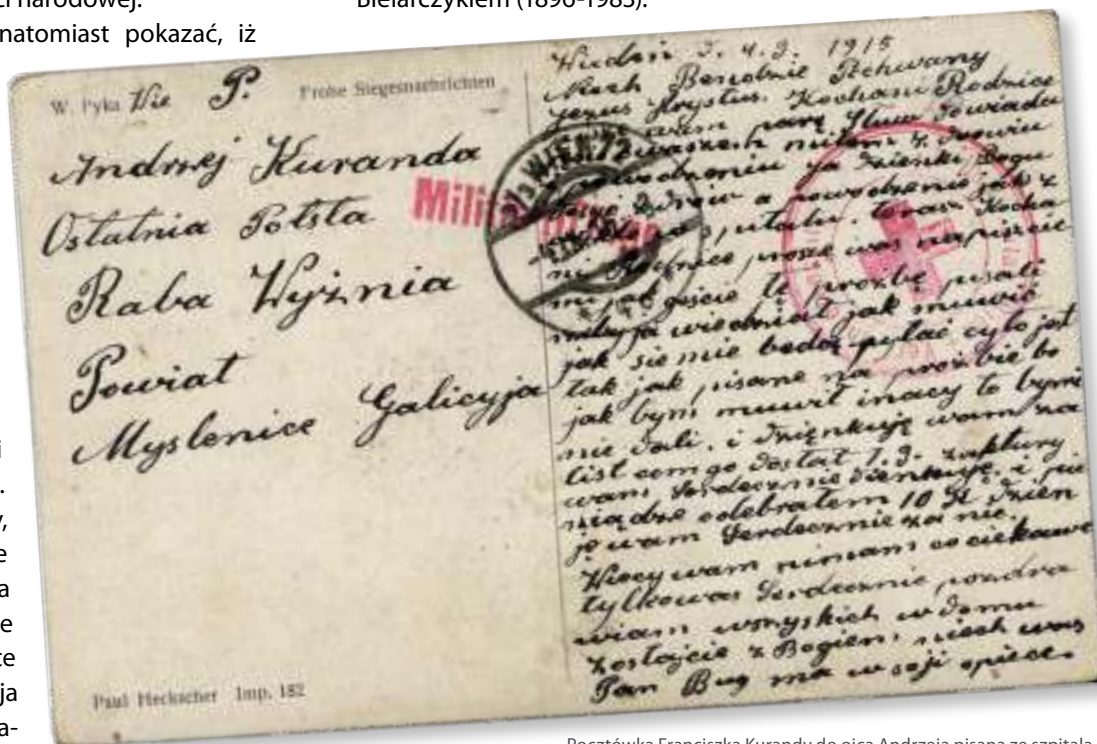 ci narodowej.
natomiast pokazać, iż
Bielarczykiem (1896-1983).
i
.
y,
e
a
e
te
ja
a-
W. Pyka
Frohe Siegesnachrichten
P.
Andrzej Kuranda
Ostatnia Potsta
Raba Wyżnia
Powiat
Myslenice Galicyja
Paul Heckscher Imp. 182
WIEN 72
1915
Niech Bendzie Pochwalony
Jezus Krystus. Kochani Rodzice
wam parę Słuw
Bogu
a powodzenie jak z
Kocha
prosze was napiszcie
mi jak te prozbę pisali
jak muwić
jak sie mie bedą pytać cy to jest
tak jak pisane na prozbie bo
jak bym muwił inacy to bymi
nie dali. i dzienkuję wam za
list com go dostał 1.9. zaktury
wam Serdecznie dzienkuję. i pie
niądze odebrałem 10 dzien
je wam Serdecznie za nie.
Wiecy wam nimam co ciekawe
tylko was Serdecznie pozdra
wiam wszyskich w domu
zostajcie z Bogiem, niech was
Pan Bug ma w soji opiece.
Pocztówka Franciszka Kurandy do ojca Andrzeja pisana ze szpitala